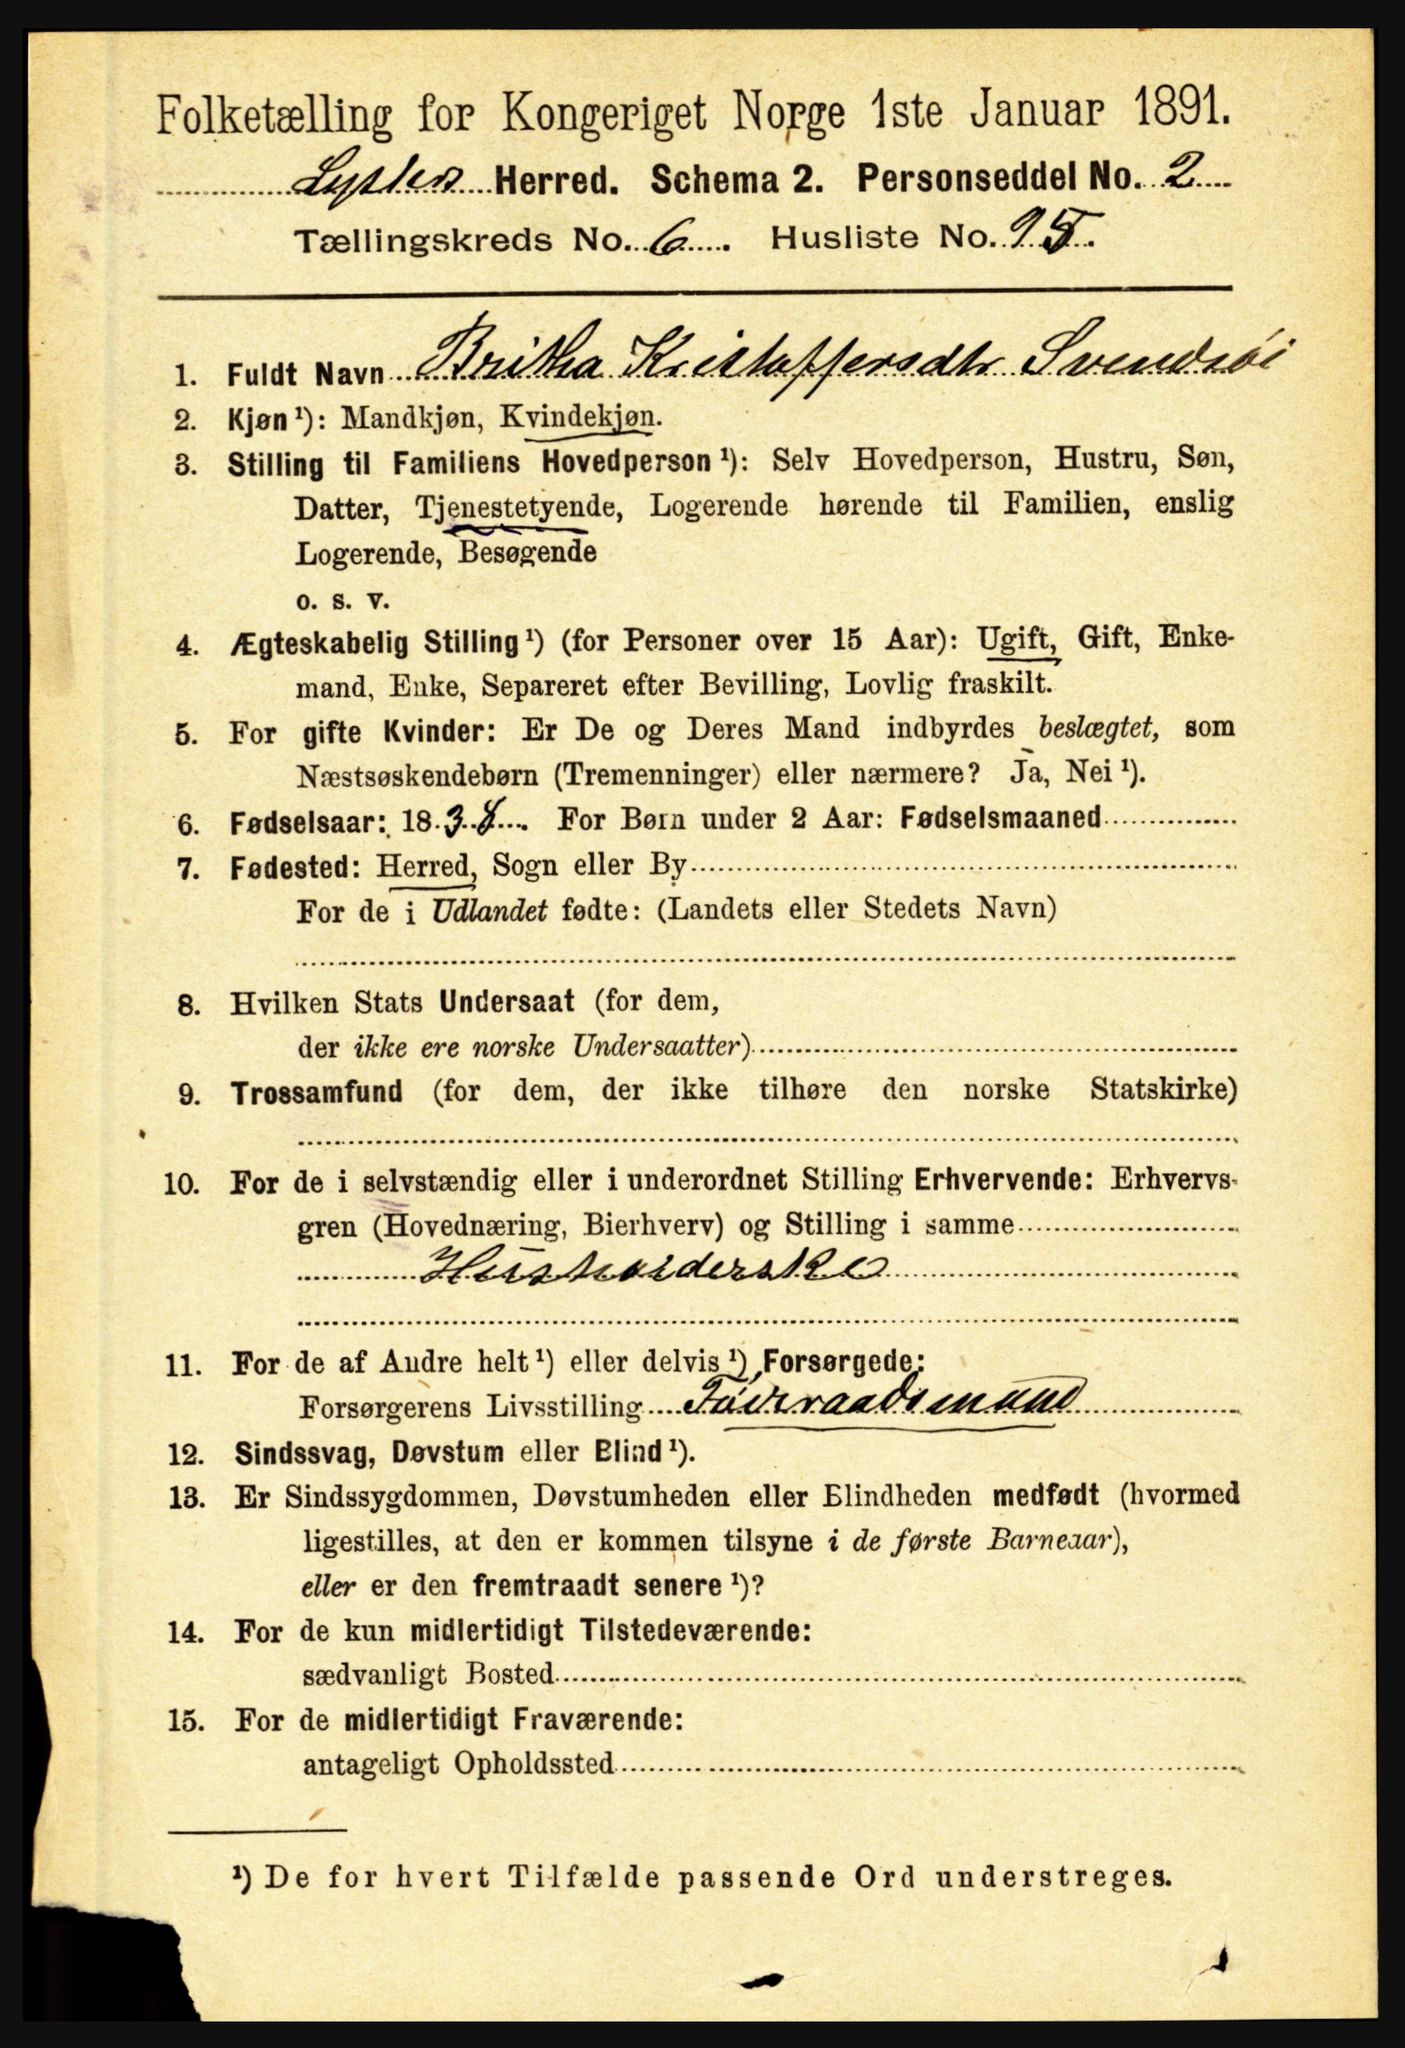 Folketælling for Kongeriget Norge 1ste Januar 1891.
Lyster Herred. Schema 2. Personseddel No. 2
Tællingskreds No. 6. Husliste No. 95.
1. Fuldt Navn Britha Kristoffersdtr Svendsøi
2. Kjøn¹): Mandkjøn, Kvindekjøn.
3. Stilling til Familiens Hovedperson¹): Selv Hovedperson, Hustru, Søn,
Datter, Tjenestetyende, Logerende hørende til Familien, enslig
Logerende, Besøgende
o. s. v.
4. Ægteskabelig Stilling¹) (for Personer over 15 Aar): Ugift, Gift, Enke-
mand, Enke, Separeret efter Bevilling, Lovlig fraskilt.
5. For gifte Kvinder: Er De og Deres Mand indbyrdes beslægtet, som
Næstsøskendebørn (Tremenninger) eller nærmere? Ja, Nei¹).
6. Fødselsaar: 1838. For Børn under 2 Aar: Fødselsmaaned
7. Fødested: Herred, Sogn eller By
For de i Udlandet fødte: (Landets eller Stedets Navn)
8. Hvilken Stats Undersaat (for dem,
der ikke ere norske Undersaatter)
9. Trossamfund (for dem, der ikke tilhøre den norske Statskirke)
10. For de i selvstændig eller i underordnet Stilling Erhvervende: Erhvervs-
gren (Hovednæring, Bierhverv) og Stilling i samme
Husholderske
11. For de af Andre helt¹) eller delvis¹) Forsørgede:
Forsørgerens Livsstilling Føderaadsmand
12. Sindssvag, Døvstum eller Blind¹).
13. Er Sindssygdommen, Døvstumheden eller Blindheden medfødt (hvormed
ligestilles, at den er kommen tilsyne i de første Barneaar),
eller er den fremtraadt senere¹)?
14. For de kun midlertidigt Tilstedeværende:
sædvanligt Bosted
15. For de midlertidigt Fraværende:
antageligt Opholdssted
¹) De for hvert Tilfælde passende Ord understreges.